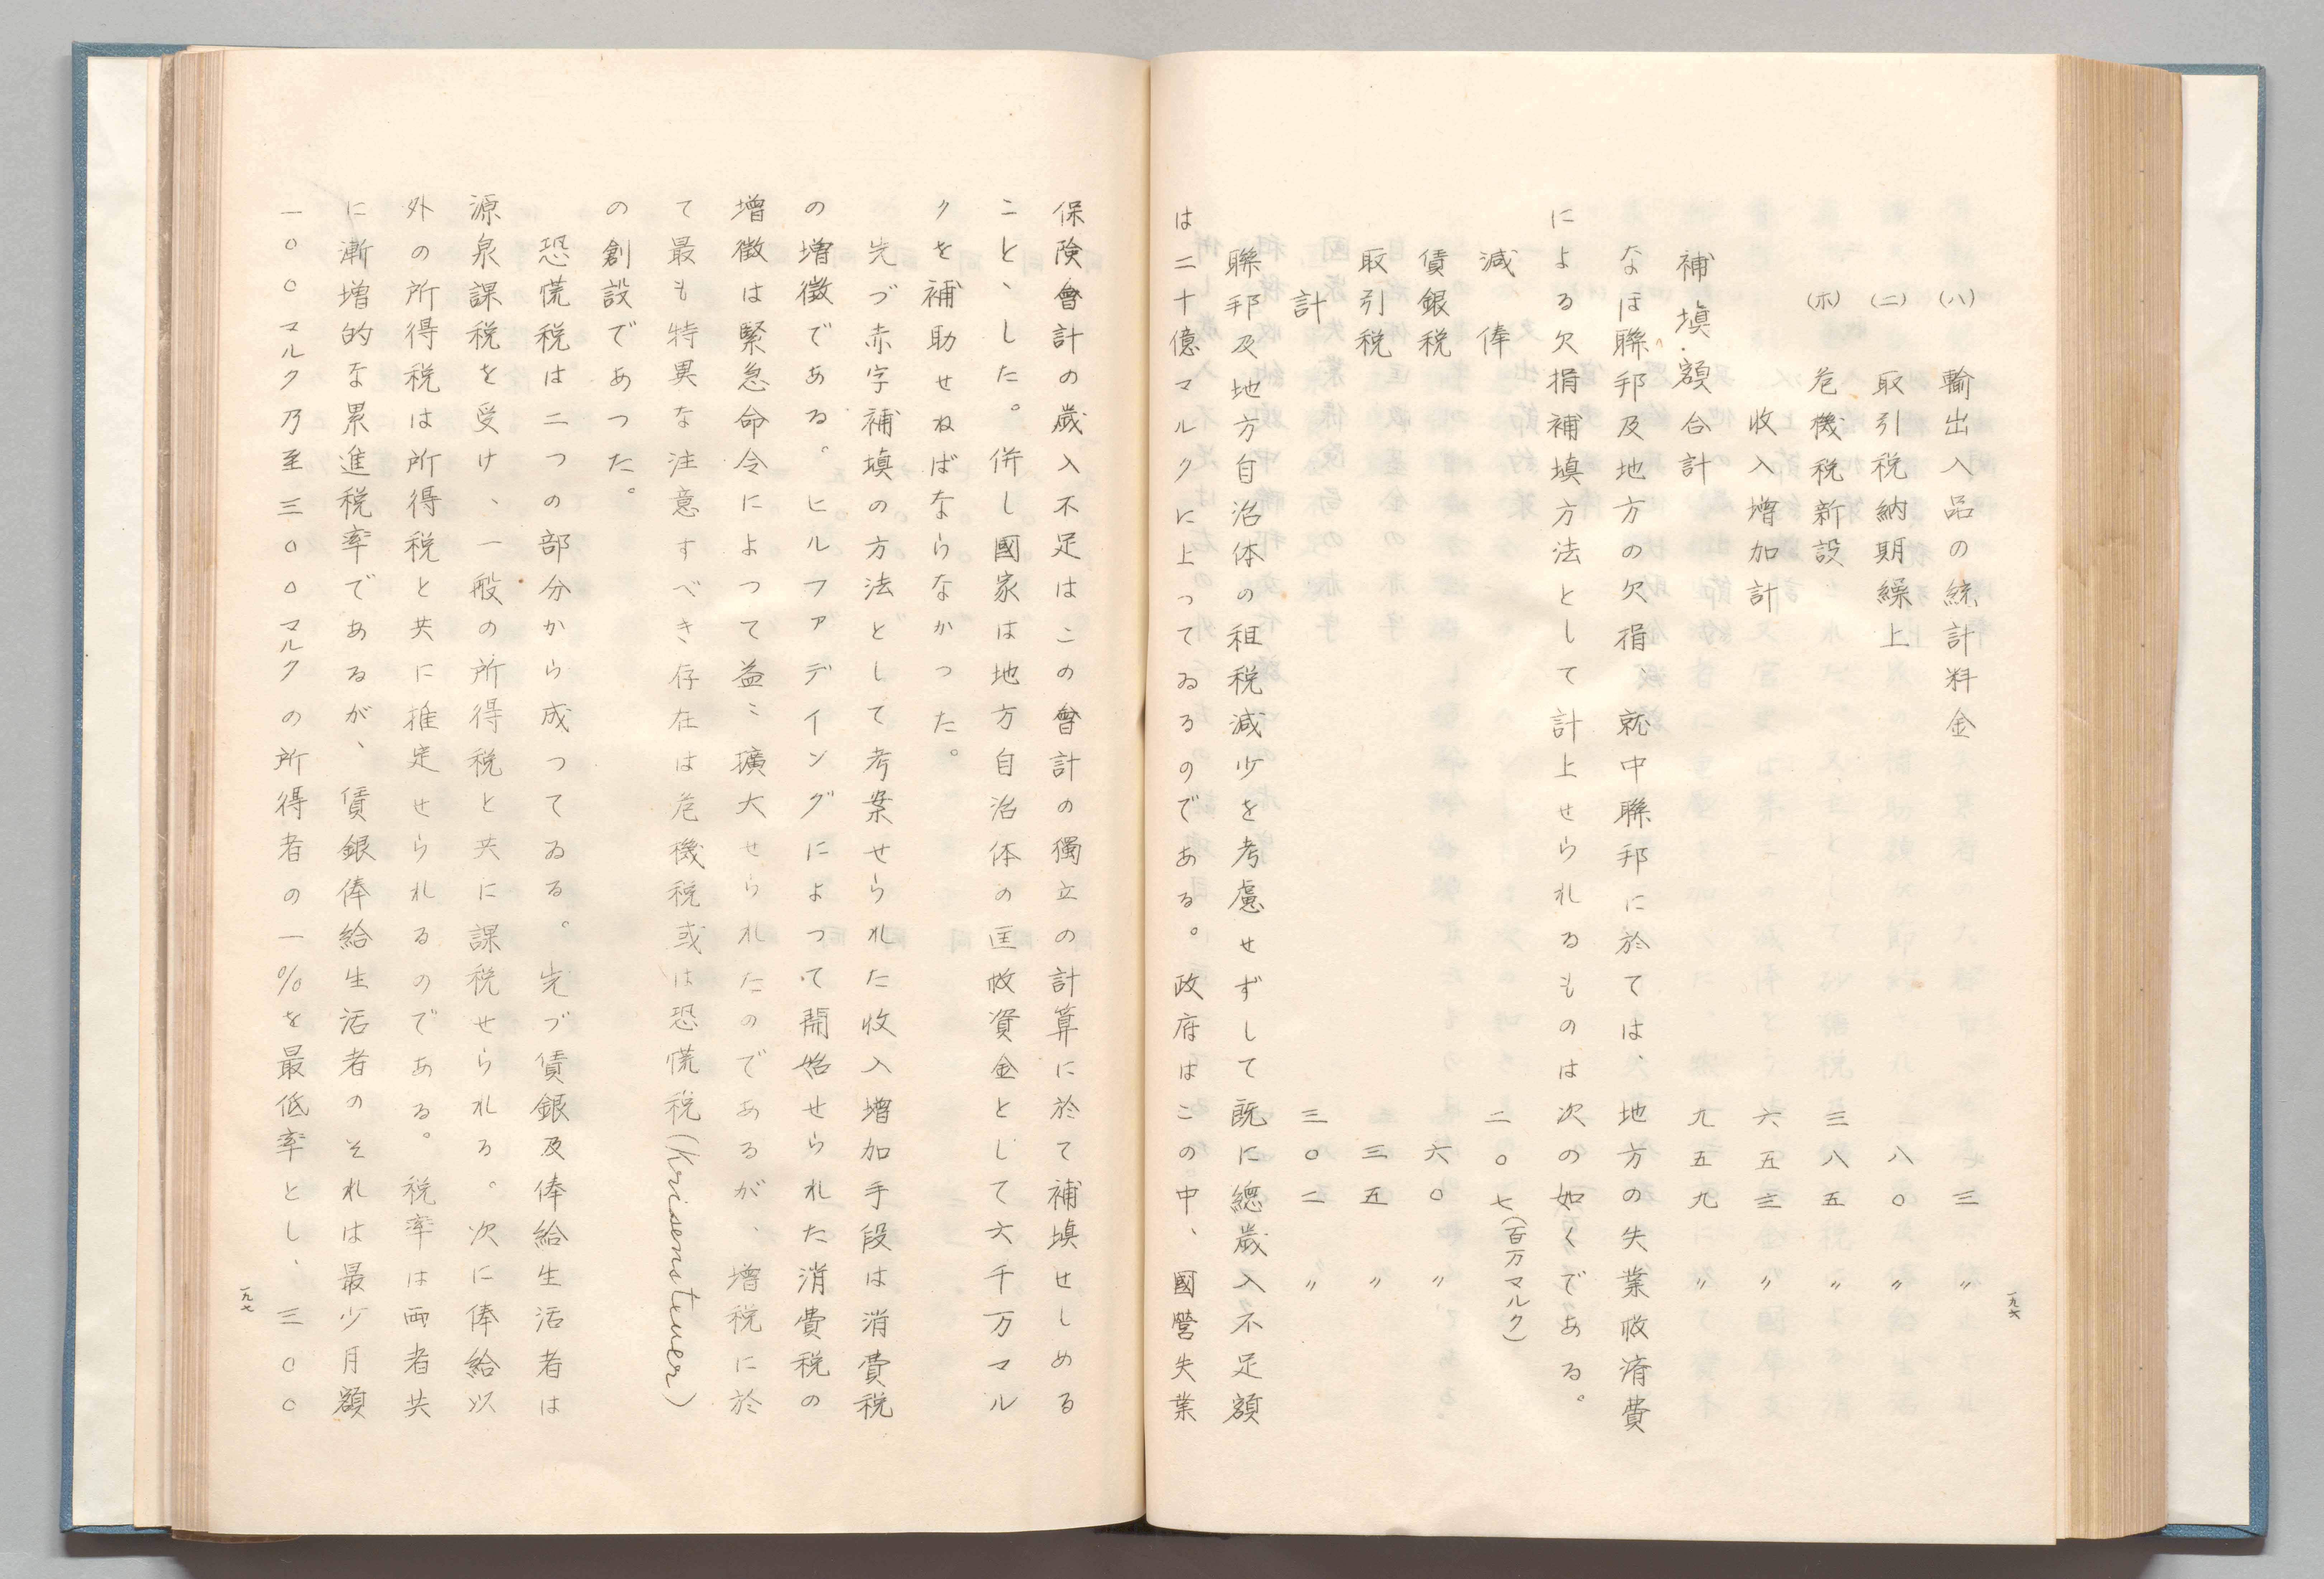 一九六
(ハ) 輸出入品の統計料金 三 〃
(ニ) 取引税納期繰上 八〇 〃
(ホ) 危機税新設 三八五 〃
收入増加計 六五三 〃
補塡額合計 九五九 〃
なほ聯邦及地方の欠損、就中聯邦に於ては、地方の失業救済費
による欠損補塡方法として計上せられるものは次の如くである。
減俸 二〇七(百万マルク)
賃銀税 六〇 〃
取引税 三五 〃
計 三〇二 〃
聯邦及地方自治体の租税減少を考慮せずして既に總歲入不足額
は二十億マルクに上ってゐるのである。政府はこの中、國營失業
保険會計の歲入不足はこの會計の獨立の計算に於て補塡せしめる
こと、した。併し國家は地方自治体の匡救資金として六千万マル
クを補助せねばならなかった。
先づ赤字補塡の方法として考案せられた收入増加手段は消費税
の増徴である。ヒルファディングによって開始せられた消費税の
増徴は緊急命令によつて益〻擴大せられたのであるが、増税に於
て最も特異な注意すべき存在は危機税或は恐慌税(Krisensteuer)
の創設であつた。
恐慌税は二つの部分から成つてゐる。先づ賃銀及俸給生活者は
源泉課税を受け、一般の所得税と共に課税せられる。次に俸給以
外の所得税は所得税と共に推定せられるのである。税率は両者共
に漸増的な累進税率であるが、賃銀俸給生活者のそれは最少月額
一〇〇マルク乃至三〇〇マルクの所得者の一%を最低率とし、三〇〇
一九七